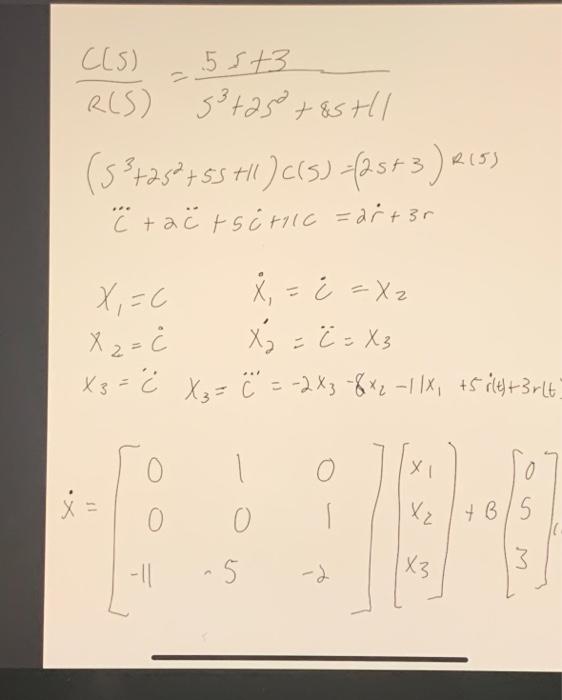 C(S)/R(S) = 5s+3 / s³+2s²+8s+11
(s³+2s²+5s+11)C(S)=(2s+3)R(S)
c⃛ + 2c̈ + 5ċ+11c = 2ṙ + 3r
X₁=C Ẋ₁ = ċ = X₂
X₂ = ċ Ẋ₂ = c̈ = X₃
X₃ = c̈ X₃ = c⃛ = -2X₃ -8X₂ -11X₁ +5ṙ(t)+3r(t)
ẋ = [0 1 0; 0 0 1; -11 -5 -2] [X₁; X₂; X₃] + B [0; 5; 3]